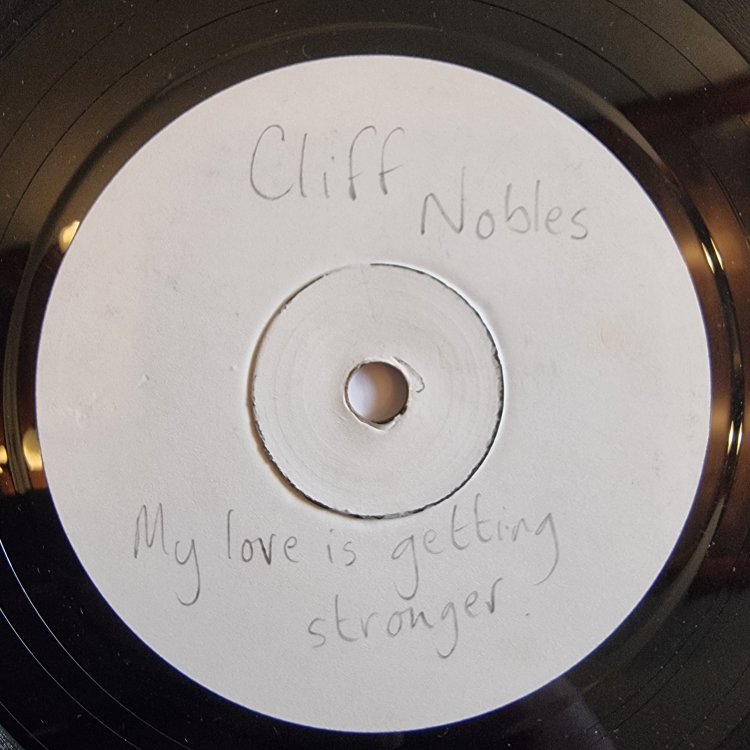 Cliff
Nobles
My love is getting
stronger.